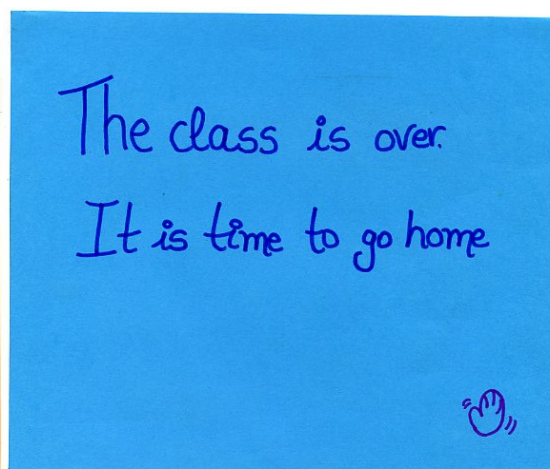 The class is over.
It is time to go home